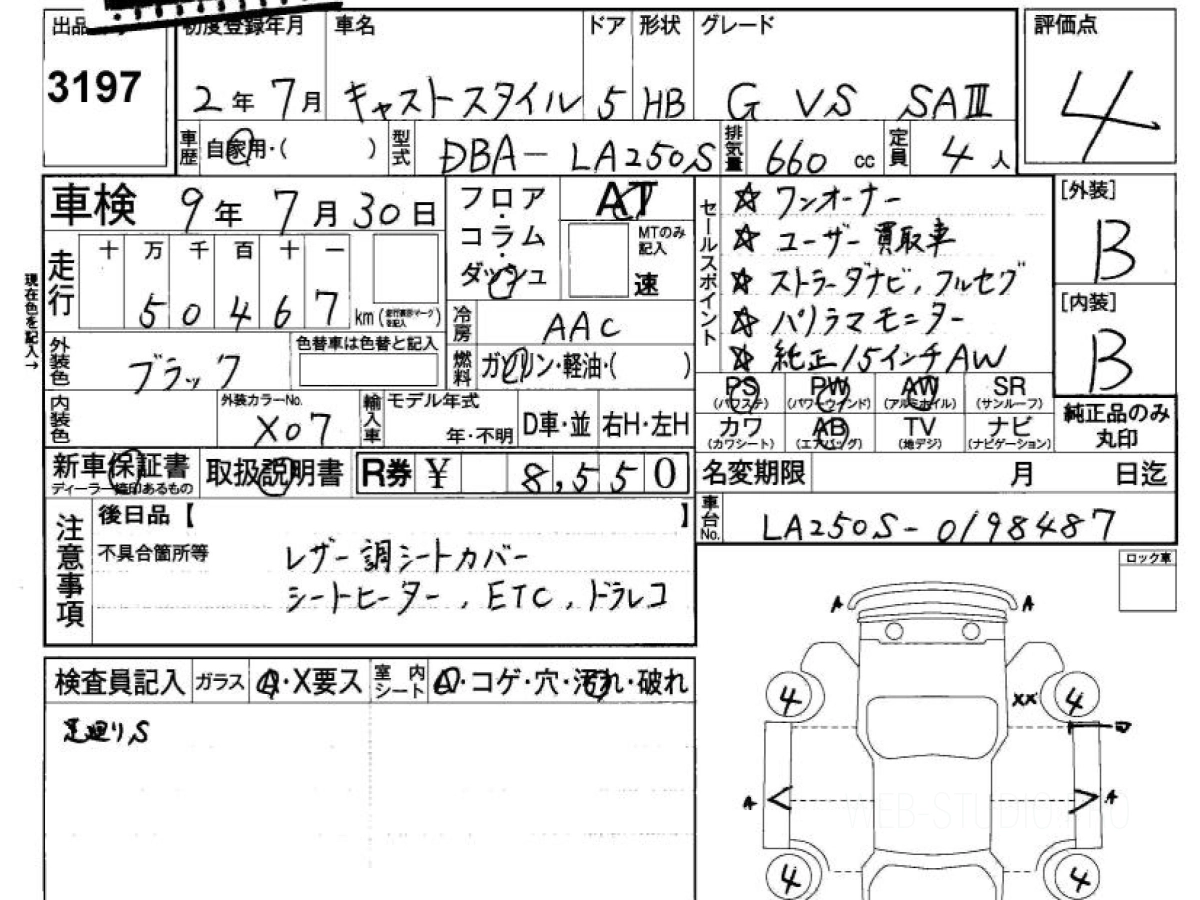 出品
3197
初度登録年月
2年 7月
車名
キャストスタイル
ドア
5
形状
HB
グレード
G VS SAⅢ
評価点
4
車歴
自家用・( )
型式
DBA-LA250S
排気量
660 cc
定員
4人
車検
9年 7月 30日
フロア・コラム・ダッシュ
AT
MTのみ記入
速
セールスポイント
☆ ワンオーナー
☆ ユーザー買取車
☆ ストラーダナビ,フルセグ
☆ パノラマモニター
☆ 純正15インチAW
[外装]
B
[内装]
B
現在色を記入→
走行
十 万 千 百 十 一
5 0 4 6 7 km
冷房
AAC
外装色
ブラック
色替車は色替と記入
燃料
ガソリン・軽油・( )
PS (パワステ)
PW (パワーウインド)
AW (アルミホイル)
SR (サンルーフ)
カワ (カワシート)
AB (エアバッグ)
TV (地デジ)
ナビ (ナビゲーション)
純正品のみ丸印
内装色
外装カラーNo.
X07
輸入車
モデル年式
年・不明
D車・並
右H・左H
新車保証書
ディーラー捺印あるもの
取扱説明書
R券 ¥ 8,550
名変期限 月 日迄
車台No.
LA250S-0198487
注意事項
後日品【 】
不具合箇所等
レザー調シートカバー
シートヒーター,ETC,ドラレコ
ロック車
検査員記入
ガラス
A・X要ス
室内シート
A・コゲ・穴・汚れ・破れ
足廻りS
A A
4 XX 4
A A
4 4
WEB-STUDIO.PRO